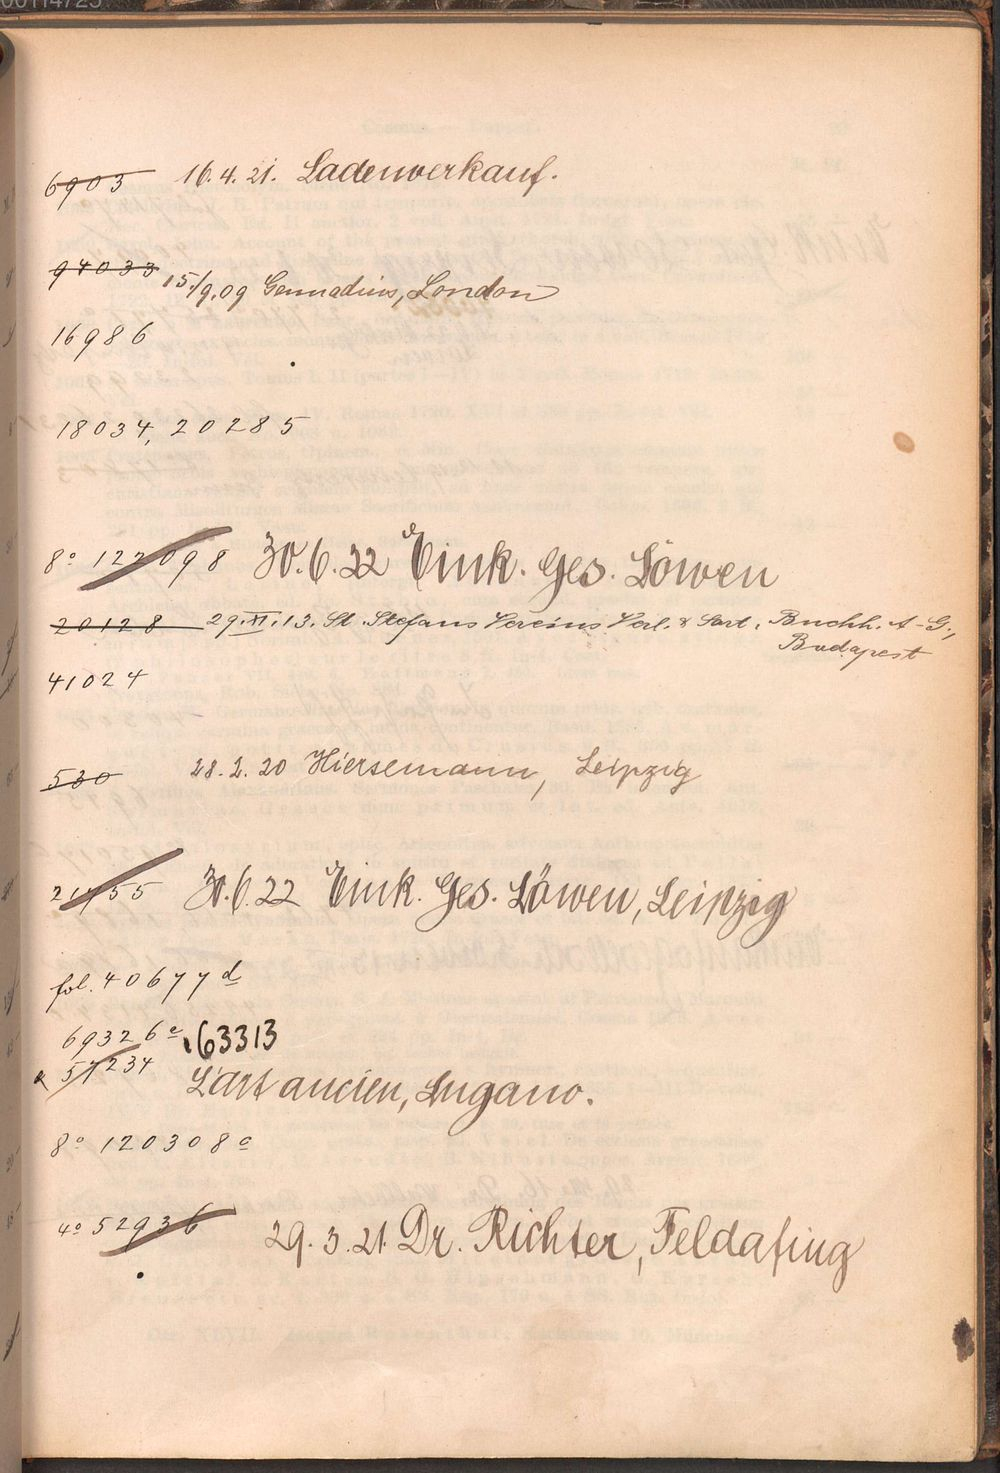 6903 16.4.21. Ladenverkauf.
94033 15/9.09 Gennadius, London
16986
18034, 20285
8° 122098 30.6.22 Eink. Ges. Löwen
20128 29.XI.13. St. Stefans Vereins Verl. & Sort. Buchh. A-G.,
Budapest
41024
530 28.2.20 Hiersemann, Leipzig
21455 30.6.22 Eink. Ges. Löwen, Leipzig
fol. 40677 d
69326 e 63313
57234 L'art ancien, Lugano.
8° 120308 c
4° 52936 29.3.21. Dr. Richter, Feldafing